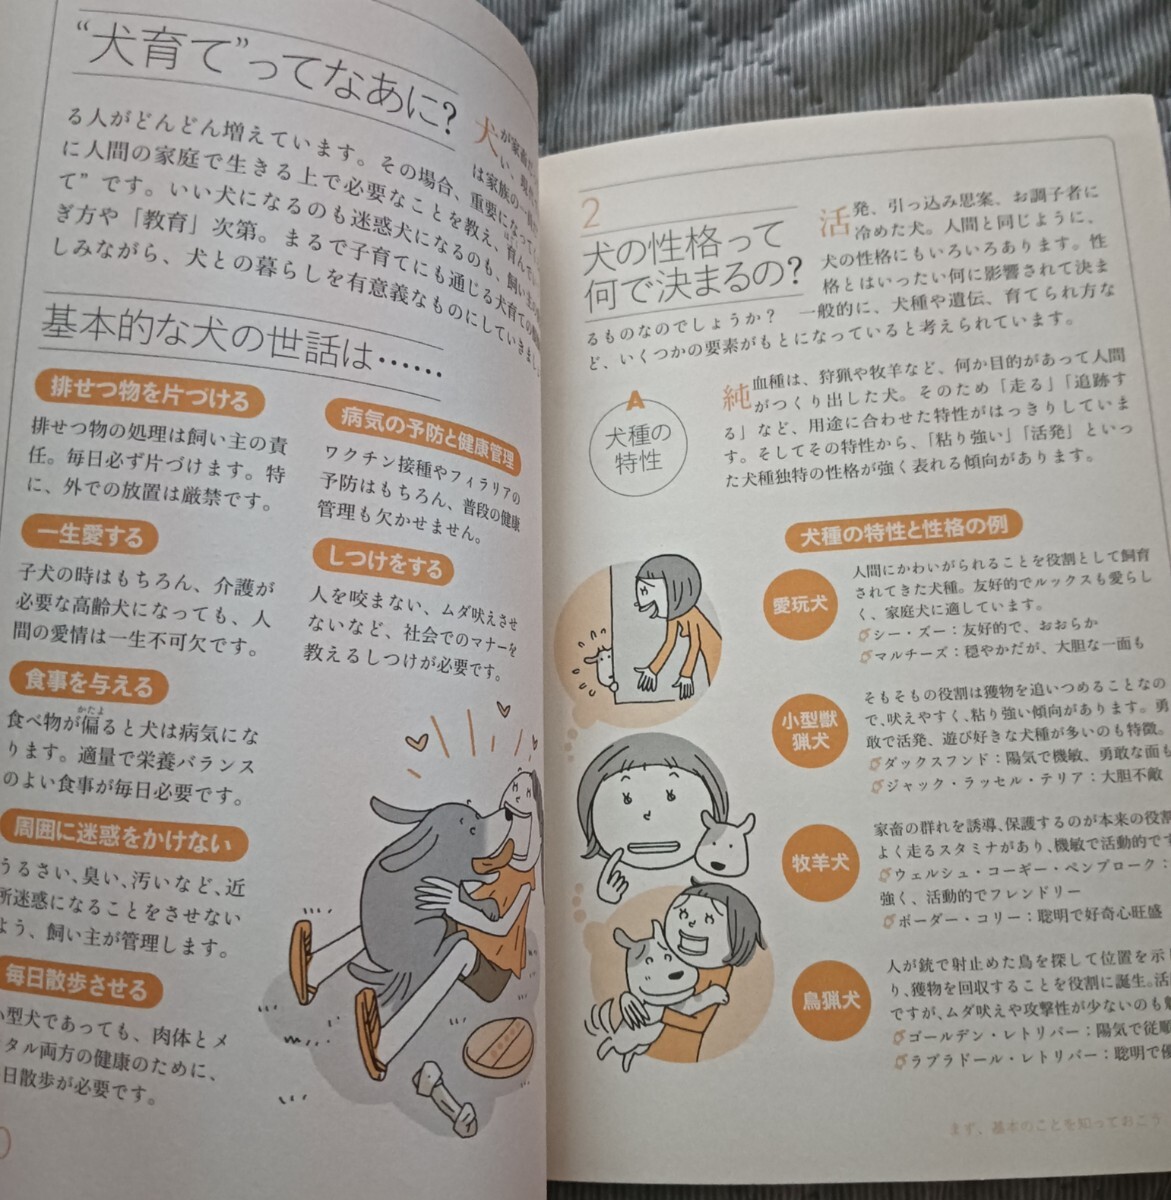 “犬育て”ってなあに?
犬
が家畜
い、現
は家族の一員
る人がどんどん増えています。その場合、重要になっ
に人間の家庭で生きる上で必要なことを教え、育んでい
て”です。いい犬になるのも迷惑犬になるのも、飼い主の
ぎ方や「教育」次第。まるで子育てにも通じる犬育ての
しみながら、犬との暮らしを有意義なものにしていきまし
基本的な犬の世話は……
排せつ物を片づける
排せつ物の処理は飼い主の責
任。毎日必ず片づけます。特
に、外での放置は厳禁です。
一生愛する
子犬の時はもちろん、介護が
必要な高齢犬になっても、人
間の愛情は一生不可欠です。
食事を与える
かたよ
食べ物が偏ると犬は病気にな
ります。適量で栄養バランス
のよい食事が毎日必要です。
周囲に迷惑をかけない
うるさい、臭い、汚いなど、近
所迷惑になることをさせない
よう、飼い主が管理します。
毎日散歩させる
小型犬であっても、肉体とメ
タル両方の健康のために、
日散歩が必要です。
病気の予防と健康管理
ワクチン接種やフィラリアの
予防はもちろん、普段の健康
管理も欠かせません。
しつけをする
人を咬まない、ムダ吠えさせ
ないなど、社会でのマナーを
教えるしつけが必要です。
0
2
犬の性格って
何で決まるの?
活発、引っ込み思案、お調子者に
冷めた犬。人間と同じように、
犬の性格にもいろいろあります。性
格とはいったい何に影響されて決ま
るものなのでしょうか? 一般的に、犬種や遺伝、育てられ方な
ど、いくつかの要素がもとになっていると考えられています。
A
犬種の
特性
純血種は、狩猟や牧羊など、何か目的があって人間
がつくり出した犬。そのため「走る」「追跡す
る」など、用途に合わせた特性がはっきりしていま
す。そしてその特性から、「粘り強い」「活発」といっ
た犬種独特の性格が強く表れる傾向があります。
犬種の特性と性格の例
愛玩犬
人間にかわいがられることを役割として飼育
されてきた犬種。友好的でルックスも愛らし
く、家庭犬に適しています。
シー・ズー：友好的で、おおらか
マルチーズ：穏やかだが、大胆な一面も
小型獣
猟犬
そもそもの役割は獲物を追いつめることなの
で、吠えやすく、粘り強い傾向があります。勇
敢で活発、遊び好きな犬種が多いのも特徴。
ダックスフンド：陽気で機敏、勇敢な面も
ジャック・ラッセル・テリア：大胆不敵
牧羊犬
家畜の群れを誘導、保護するのが本来の役割
よく走るスタミナがあり、機敏で活動的です
ウェルシュ・コーギー・ペンブローク：
強く、活動的でフレンドリー
ボーダー・コリー：聡明で好奇心旺盛
鳥猟犬
人が銃で射止めた鳥を探して位置を示し
り、獲物を回収することを役割に誕生。活
ですが、ムダ吠えや攻撃性が少ないのも
ゴールデン・レトリバー：陽気で従順
ラブラドール・レトリバー：聡明で
まず、基本のことを知っておこう